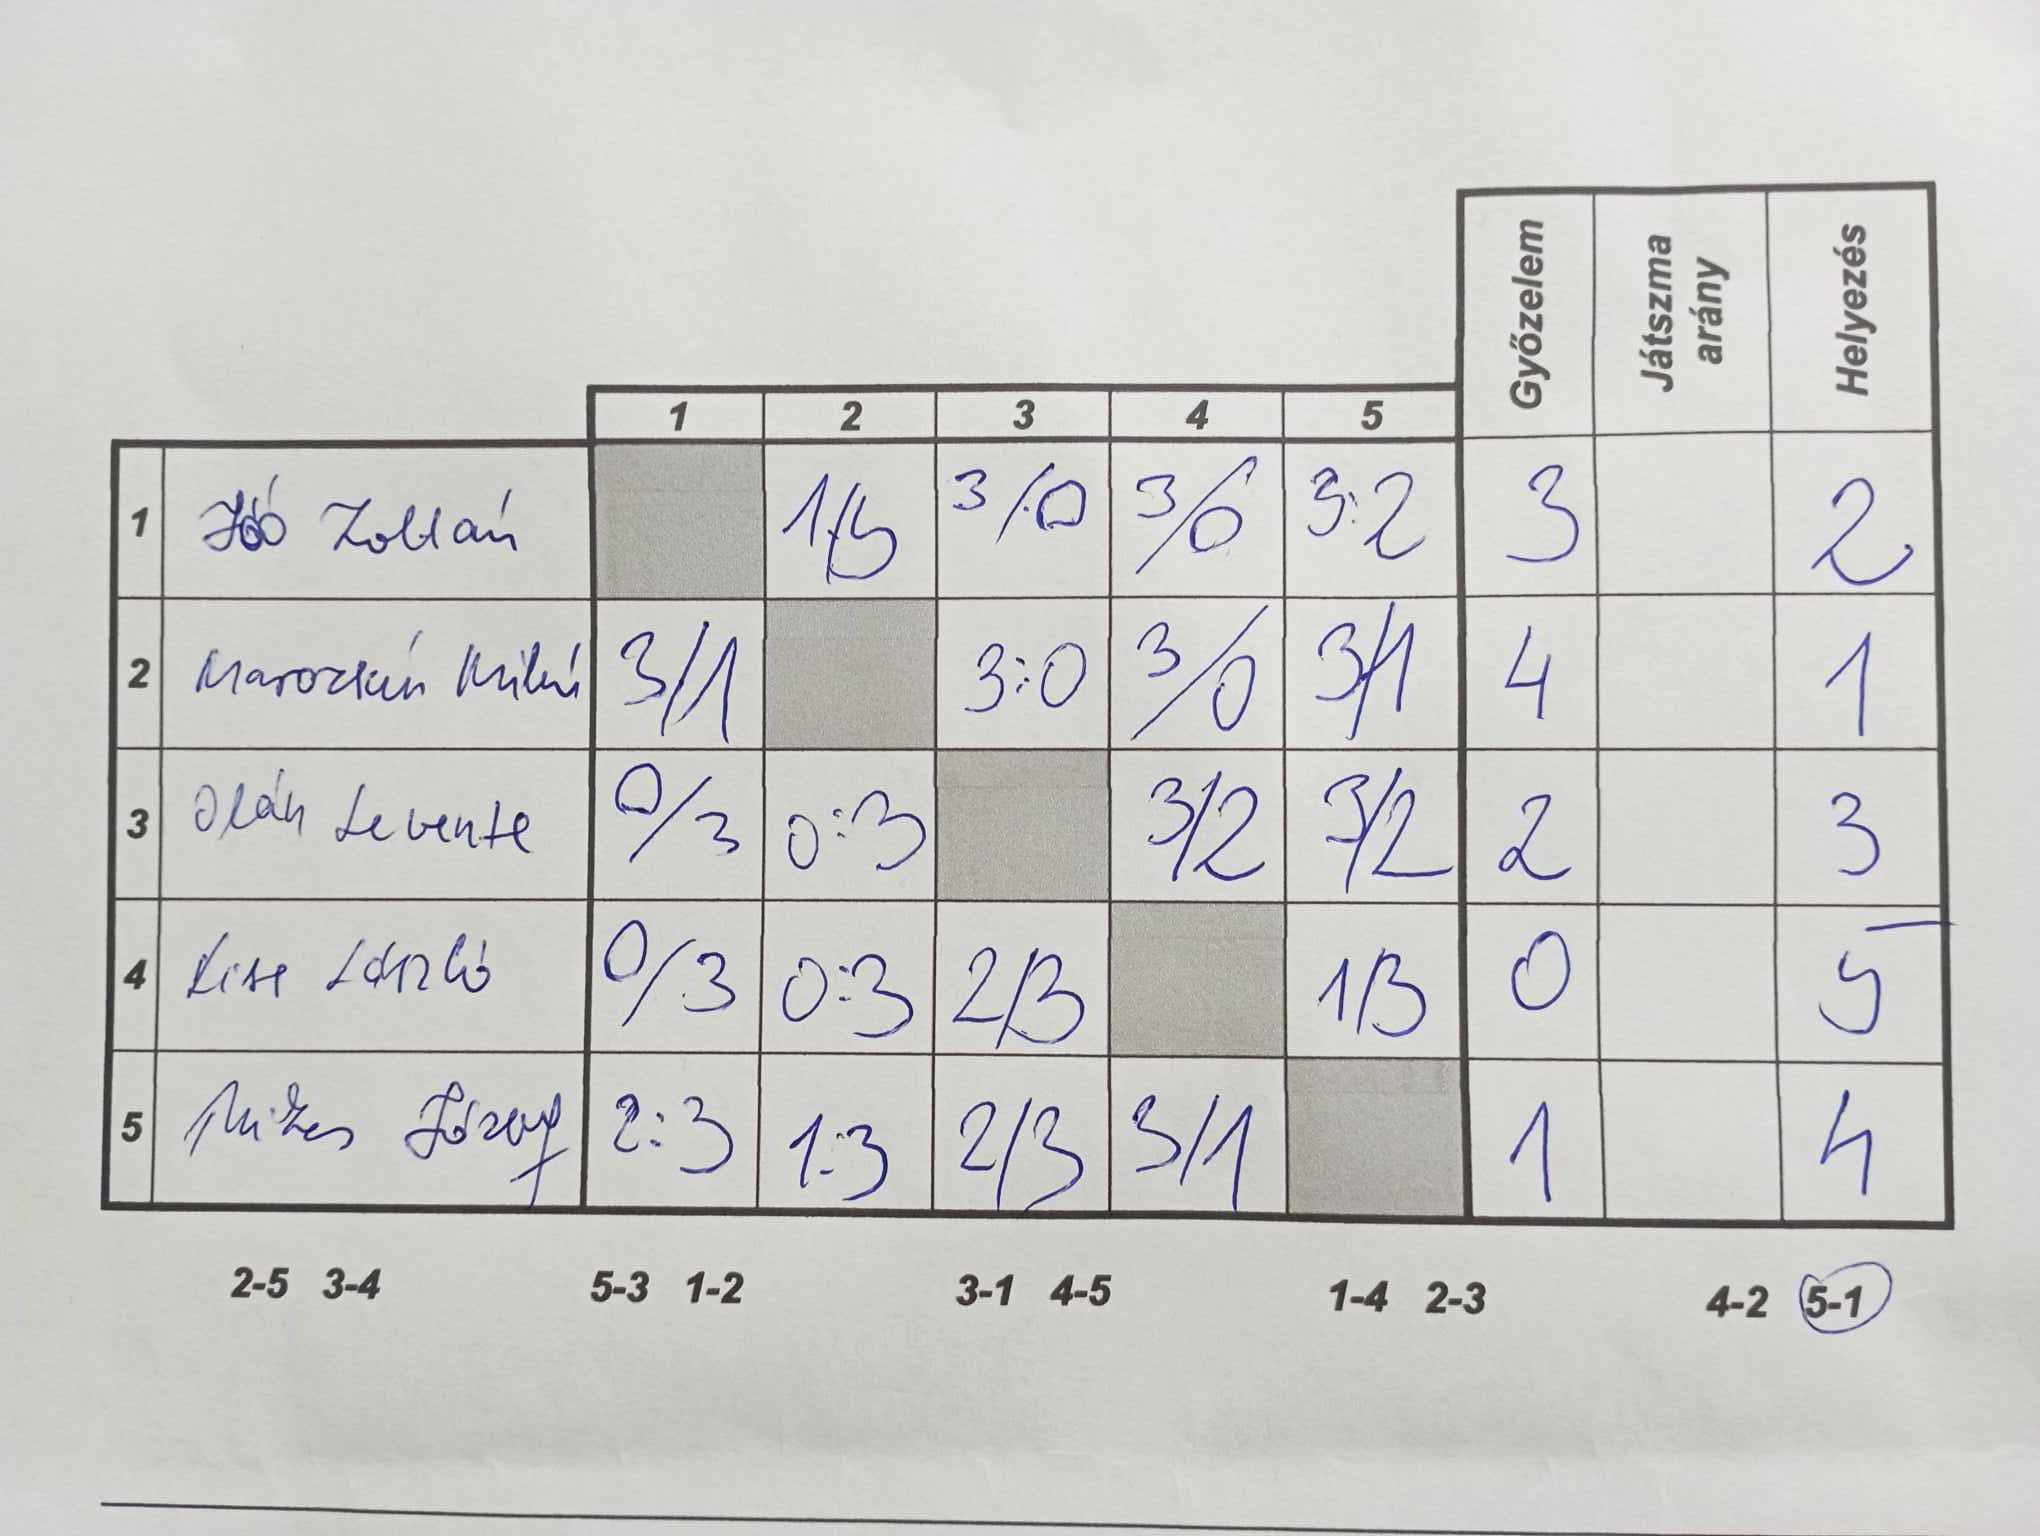 Győzelem Játszma arány Helyezés
1 2 3 4 5
1 Jóó Zoltán 1/3 3/0 3/0 3:2 3 2
2 3/1 3:0 3/0 3/1 4 1
3 Oláh Levente 0/3 0:3 3/2 3/2 2 3
4 László 0/3 0:3 2/3 1/3 0 5
5 Mikes József 2:3 1:3 2/3 3/1 1 4
2-5 3-4 5-3 1-2 3-1 4-5 1-4 2-3 4-2 5-1